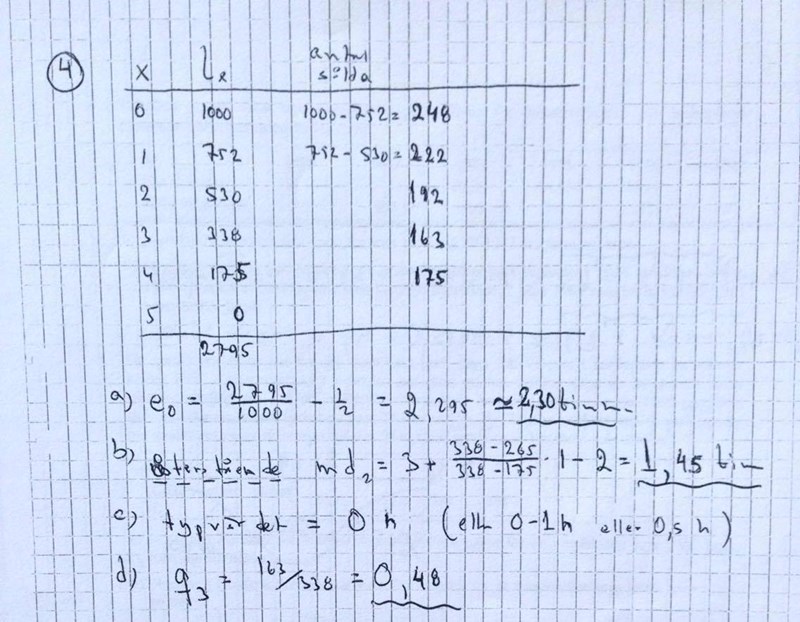 4
x lx antal sålda
0 1000 1000-752= 248
1 752 752-530=222
2 530 192
3 338 163
4 175 175
5 0
2795
a) e0 = 2795/1000 - 1/2 = 2,295 ≃ 2,30 timm.
b) återstående md2 = 3 + (338-265)/(338-175) · 1 - 2 = 1,45 tim
c) typvärdet = 0 h (elln 0-1h eller 0,5 h)
d) q3 = 163/338 = 0,48